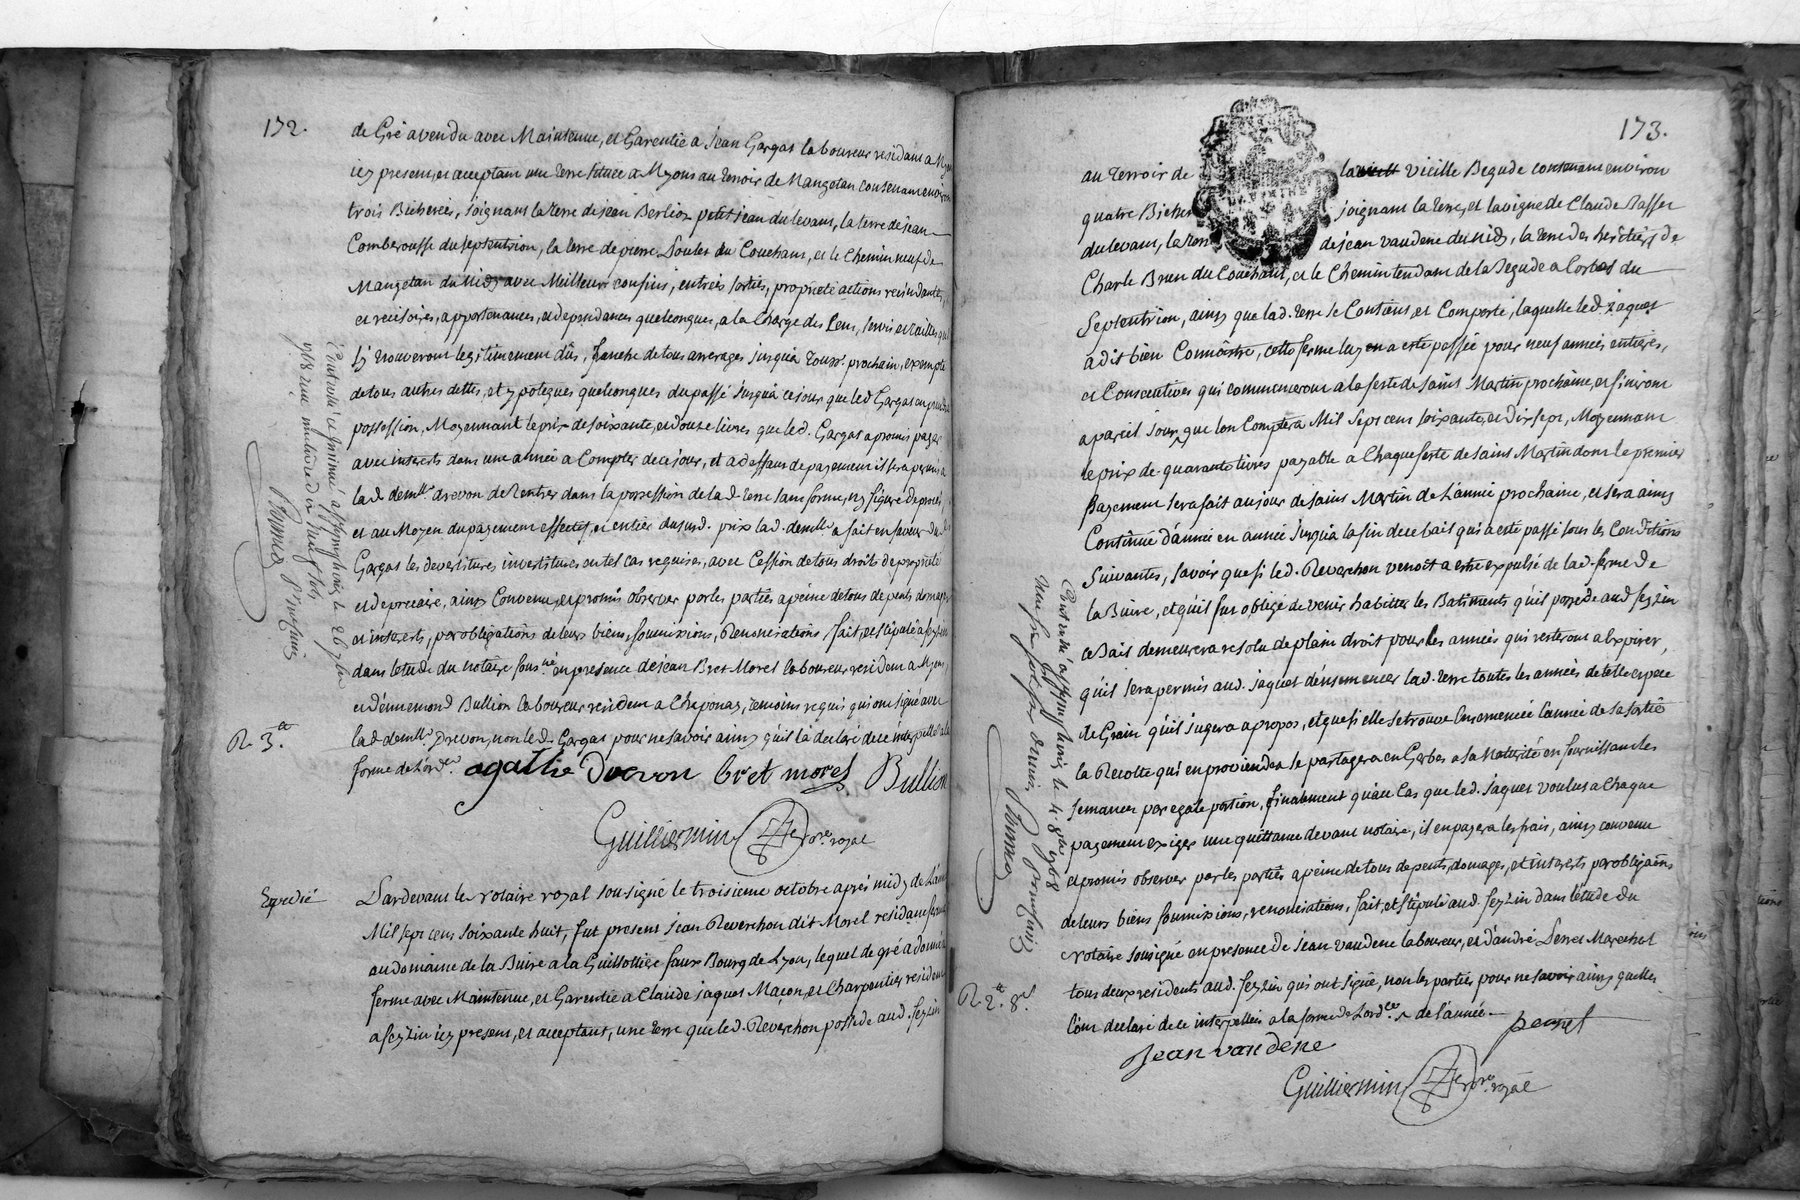 172.
de Gré a vendu avec Maintenue, et Garentie a Jean Gargas laboureur residant a Myons
icy present, et acceptant une terre située a Myons au terroir de Mangetan contenant environ
trois Bicherées, joignant la terre de jean Berlioz petit jean du levant, la terre de jean
Comberousse du septentrion, la terre de pierre Soulier du Couchant, et le Chemin neuf de
Mangetan du Midy avec Meilleurs confins, entrées sorties, proprieté actions recindantes,
et recisoires, appartenances, et dependances quelconques, a la Charge des Cens, servis et tailles qui
s'y trouveront legitimement dûs, franche de tous arrerages jusqu'a Touss.t prochain, exempte
de tous autres dettes, et ypoteques quelconques du passé jusqu'a ce jour que led Gargas en prendra
possession, Moyennant le prix de soixante, et douze livres que led. Gargas a promis payer
avec interests dans une année a Compter de ce jour, et a deffaut de payement il sera permis a
lad. demlle drevon de Rentrer dans la possession de lad. terre sans forme, ny figure de procès,
et au Moyen du payement effectif, et entier du sud. prix lad. demlle a fait en faveur dud.
Gargas les devestitures investitures en tel cas requises, avec Cession de tous droits de proprieté
et de precaire, ainsy Convenu, et promis observer par les parties a peine de tous depents domages,
et interests, par obligations de leurs biens, soumissions, Renonciations, fait, et stipulé a feyzin
dans letude du notaire sous.né en presence de jean Bret Morel laboureur resident a Myons,
et d'ennemond Bullion laboureur resident a Chaponay, temoins requis qui ont signé avec
lad. demlle. Drevon, non led. Gargas pour ne savoir ainsy qu'il l'a declaré de ce interpellé a la
forme de l'ord.ce agathe drevon bret morel Bullion
Guilliermin no.re royal
R. 3.
Expedié
Pardevant le Notaire royal sousigné le troisieme octobre après midy de l'année
Mil sept cens soixante huit, fut present jean Reverchon dit Morel residant
au domaine de la Buire a la Guillottiere faux Bourg de Lyon, lequel de gré a donné a
ferme avec Maintenue, et Garentie a Claude jaquet Maçon, et Charpentier resident
a feyzin icy present, et acceptant, une terre que led. Reverchon possede aud. feyzin
173.
au terroir de la vieille Begude contenant environ
quatre Bicher joignant la terre, et la vigne de Claude Passer
du levant, la terr de jean vandene du Midy, la terre des heritiers de
Charle Brun du Couchant, et le Chemin tendant de la Begude a Corbas du
Septentrion, ainsy que lad. terre se Contient, et Comporte, laquelle led. jaquet
a dit bien Connoistre, cette ferme luy a esté passée pour neuf années entieres,
et Consecutives qui commenceront a la feste de saint Martin prochaine, et finiront
a pareil jour que lon Comptera Mil Sept cens soixante, et dix sept, Moyennant
le prix de quarante livres payable a Chaque feste de saint Martin dont le premier
Payement sera fait au jour de saint Martin de l'année prochaine, et sera ainsy
Continué d'année en année jusqu'a la fin de ce bail qui a esté passé sous les Conditions
Suivantes, savoir que si led. Reverchon venoit a estre expulsé de lad. ferme de
la Buire, et qu'il fut obligé de venir habitter les Batiments qu'il possede aud. feyzin
ce Bail demeurera resolu de plain droit pour les années qui resteront a Expirer,
qu'il sera permis aud. jaquet d'ensemencer lad. terre toutes les années de telle espece
de Grain qu'il jugera apropos, et que si elle se trouve Ensemencée l'année de sa sortie
la Recolte qui en proviendra se partagera en Gerbes a sa Maturité en fournissant les
semances par egale portion, finalement qu'au Cas que led. jaquet voulut a Chaque
payement exiger une quittance devant notaire, il en payera les frais, ainsy convenu
et promis observer par les parties a peine de tous depents, domages, et interests par obligaõns
de leurs biens soumissions, renonciations, fait, et stipulé aud. feyzin dans l'étude du
Notaire sousigné en presence de jean vandene laboureur, et d'andré Pernet Marechal
tous deux residents aud. feyzin qui ont signé, non les parties pour ne savoir ainsy quelles
l'ont declaré de ce interpellées a la forme de l'ord.ce de l'année
pernet
Jean vandene
Guilliermin no.re royal
R. 2. 8.